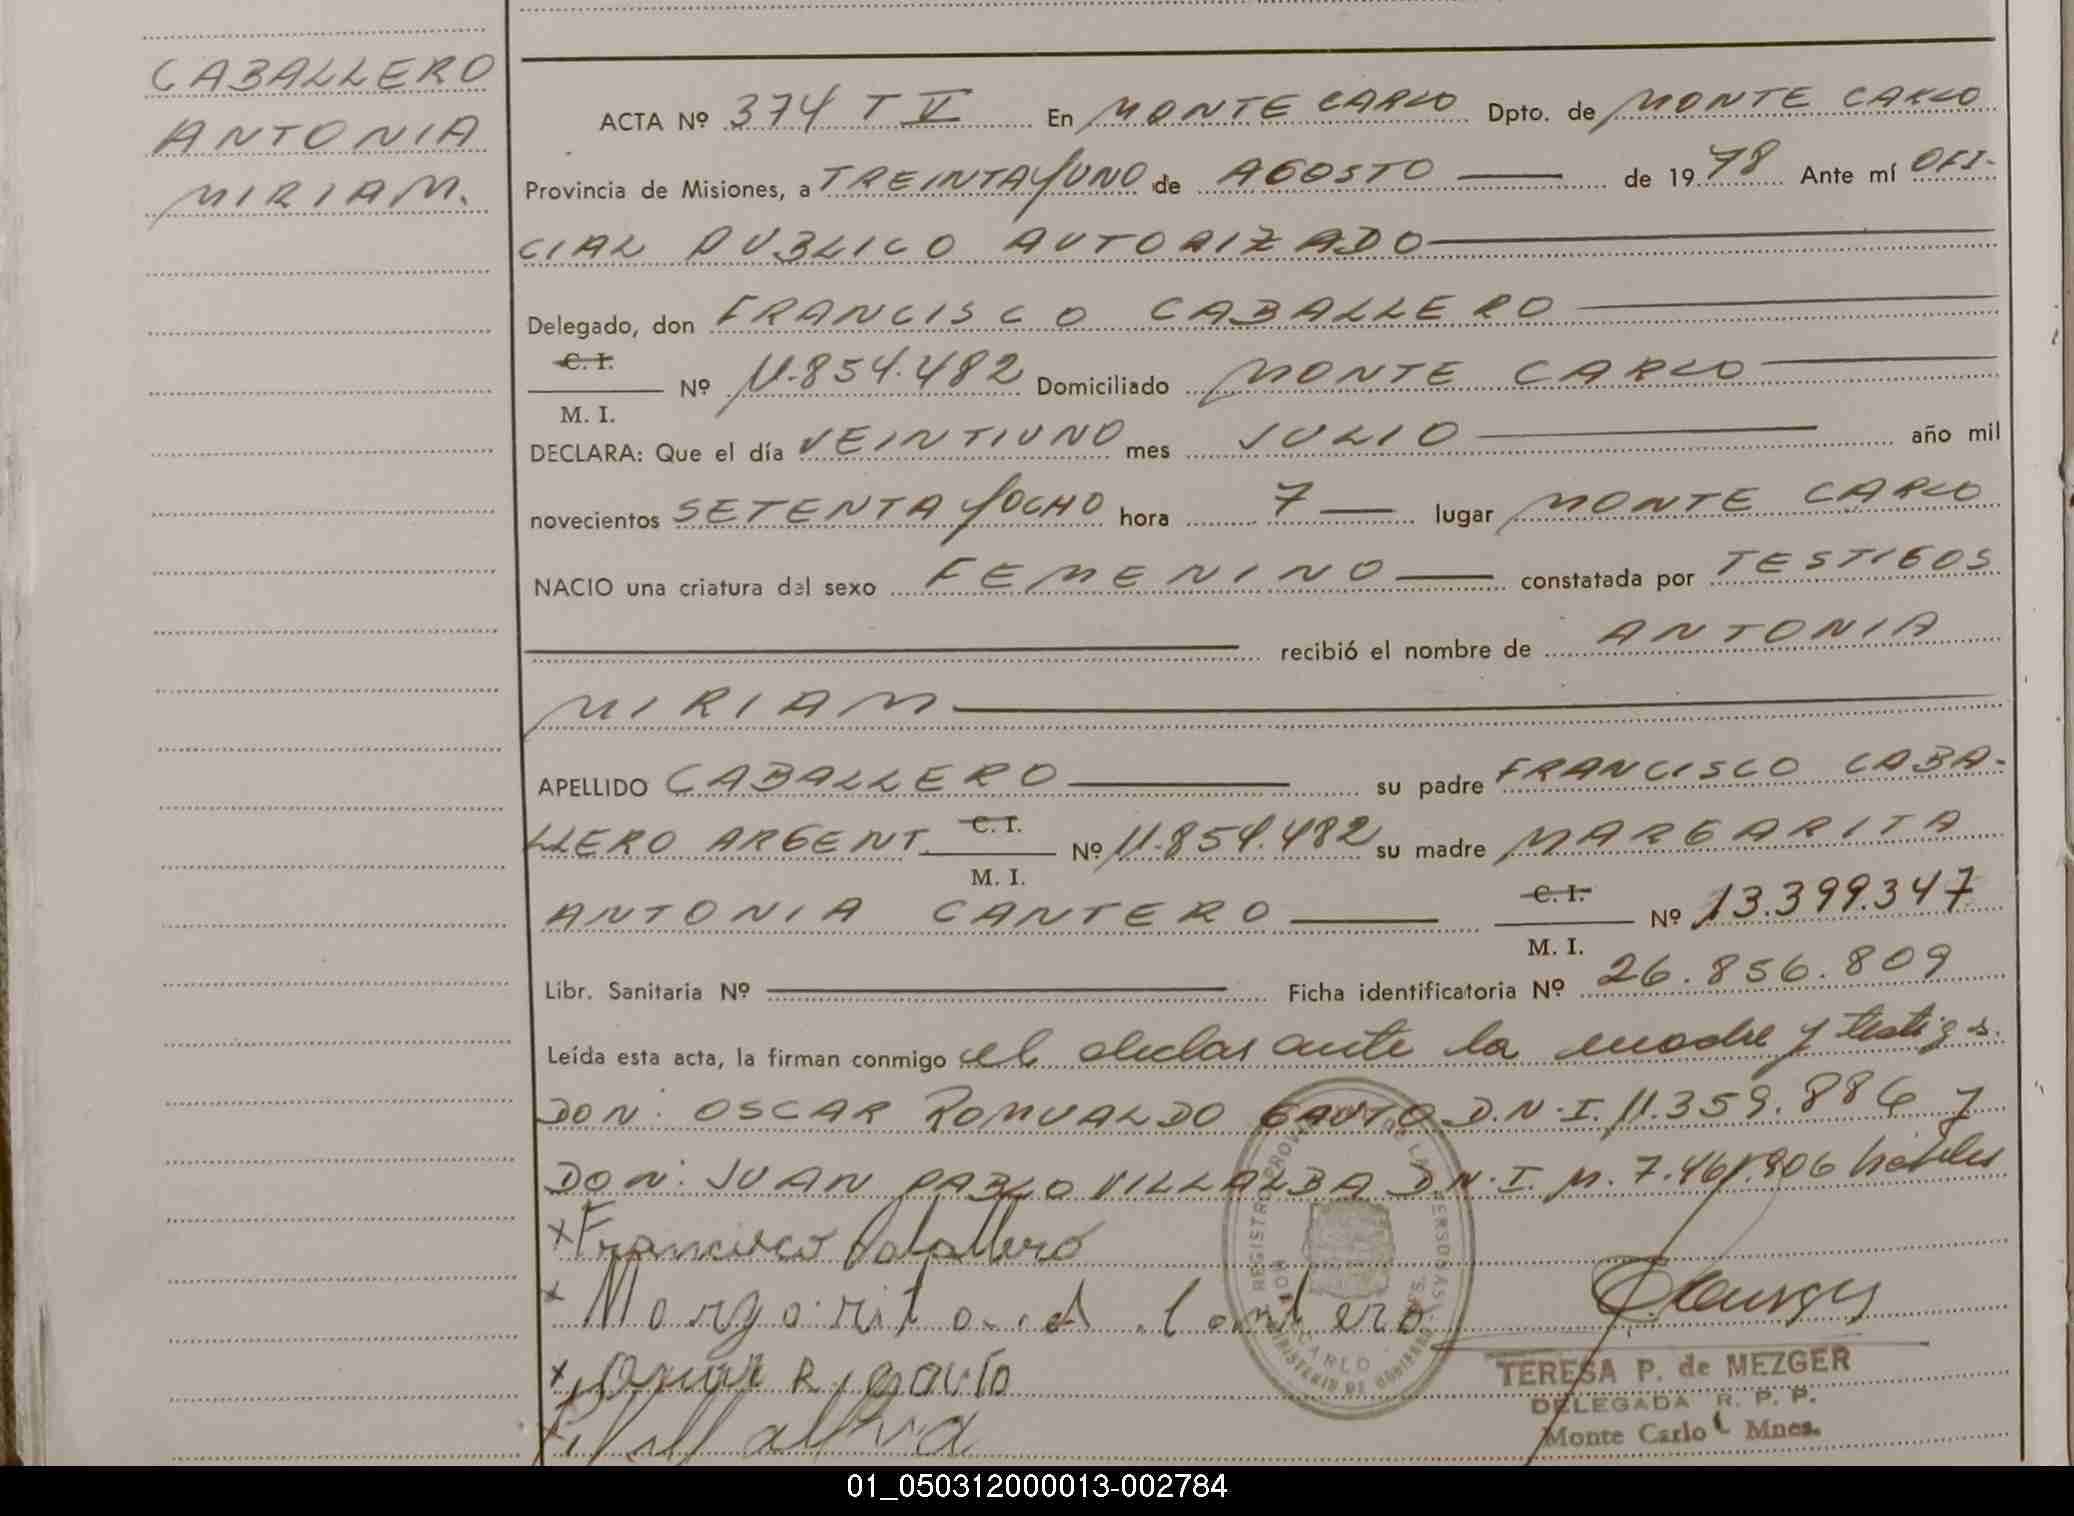 CABALLERO
ANTONIA
MIRIAM.
ACTA Nº 374 T V En MONTE CARLO Dpto. de MONTE CARLO
Provincia de Misiones, a TREINTA Y UNO de AGOSTO de 1978 Ante mí OFI-
CIAL PUBLICO AUTORIZADO
Delegado, don FRANCISCO CABALLERO
C. I.
M. I.
Nº 11.854.482 Domiciliado MONTE CARLO
DECLARA: Que el día VEINTIUNO mes JULIO año mil
novecientos SETENTA Y OCHO hora 7 lugar MONTE CARLO
NACIO una criatura del sexo FEMENINO constatada por TESTIGOS
recibió el nombre de ANTONIA
MIRIAM
APELLIDO CABALLERO su padre FRANCISCO CABA-
LLERO ARGENT. C. I. Nº 11.854.482 su madre MARGARITA
M. I.
ANTONIA CANTERO C. I. Nº 13.399.347
M. I.
Libr. Sanitaria Nº Ficha identificatoria Nº 26.856.809
Leída esta acta, la firman conmigo el declarante la madre y testigos.
DON: OSCAR ROMUALDO GAUTO D.N.I. 11.359.886 y
DON: JUAN PABLO VILLALBA D.N.I. M. 7.461.906 hábiles
x Francisco Caballero
x Margarita A Cantero
x Oscar R. Gauto
x Villalba
REGISTRO PROVINCIAL DE LAS PERSONAS
MINISTERIO DE GOBIERNO
TERESA P. de MEZGER
DELEGADA R. P. P.
Monte Carlo Mnes.
01_050312000013-002784